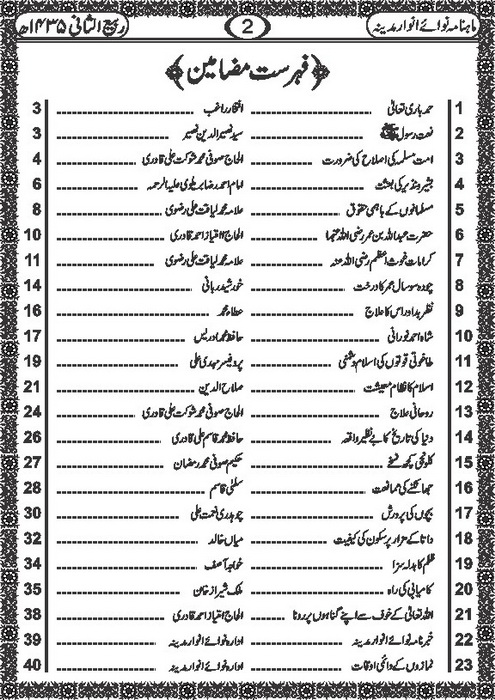 ماہنامہ نوائے انوار مدینہ 2 ربیع الثانی ۱۴۳۵ھ
﴿فہرست مضامین﴾
1 حمد باری تعالیٰ ........ افتخار راغب ........ 3
2 نعت رسول ﷺ ........ سید نصیر الدین نصیر ........ 3
3 امت مسلمہ کی اصلاح کی ضرورت ........ الحاج صوفی محمد شوکت علی قادری ........ 4
4 بشیر و نذیر کی بعثت ........ امام احمد رضا بریلوی علیہ الرحمہ ........ 6
5 مسلمانوں کے باہمی حقوق ........ علامہ محمد لیاقت علی رضوی ........ 8
6 حضرت عبداللہ بن عمر رضی اللہ عنہما ........ الحاج امتیاز احمد قادری ........ 10
7 کرامات غوث اعظم رضی اللہ عنہ ........ علامہ محمد لیاقت علی رضوی ........ 11
8 چودہ سو سال عمر کا درخت ........ خورشید ربانی ........ 14
9 نظر بد اور اس کا علاج ........ عطاء محمد ........ 16
10 شاہ احمد نورانی ........ حافظ محمد ادریس ........ 17
11 طاغوتی قوتوں کی اسلام دشمنی ........ پروفیسر مہدی علی ........ 19
12 اسلام کا نظام معیشت ........ صلاح الدین ........ 21
13 روحانی علاج ........ الحاج صوفی محمد شوکت علی قادری ........ 24
14 دنیا کی تاریخ کا بے نظیر واقعہ ........ حافظ محمد قاسم علی قادری ........ 26
15 کلونجی کچھ نسخے ........ حکیم صوفی محمد رمضان ........ 27
16 جھانکنے کی ممانعت ........ سلمٰی قاسم ........ 28
17 بچوں کی پرورش ........ چوہدری نعمت علی ........ 30
18 داتا کے مزار پر سکون کی کیفیت ........ میاں خالد ........ 32
19 ظلم کا بدلہ سزا ........ خواجہ آصف ........ 34
20 کامیابی کی راہ ........ ملک شیراز خان ........ 35
21 اللہ تعالیٰ کے خوف سے اپنے گناہوں پر رونا ........ الحاج امتیاز احمد قادری ........ 38
22 خبرنامہ نوائے انوار مدینہ ........ ادارہ نوائے انوار مدینہ ........ 39
23 نمازوں کے دائمی اوقات ........ ادارہ نوائے انوار مدینہ ........ 40